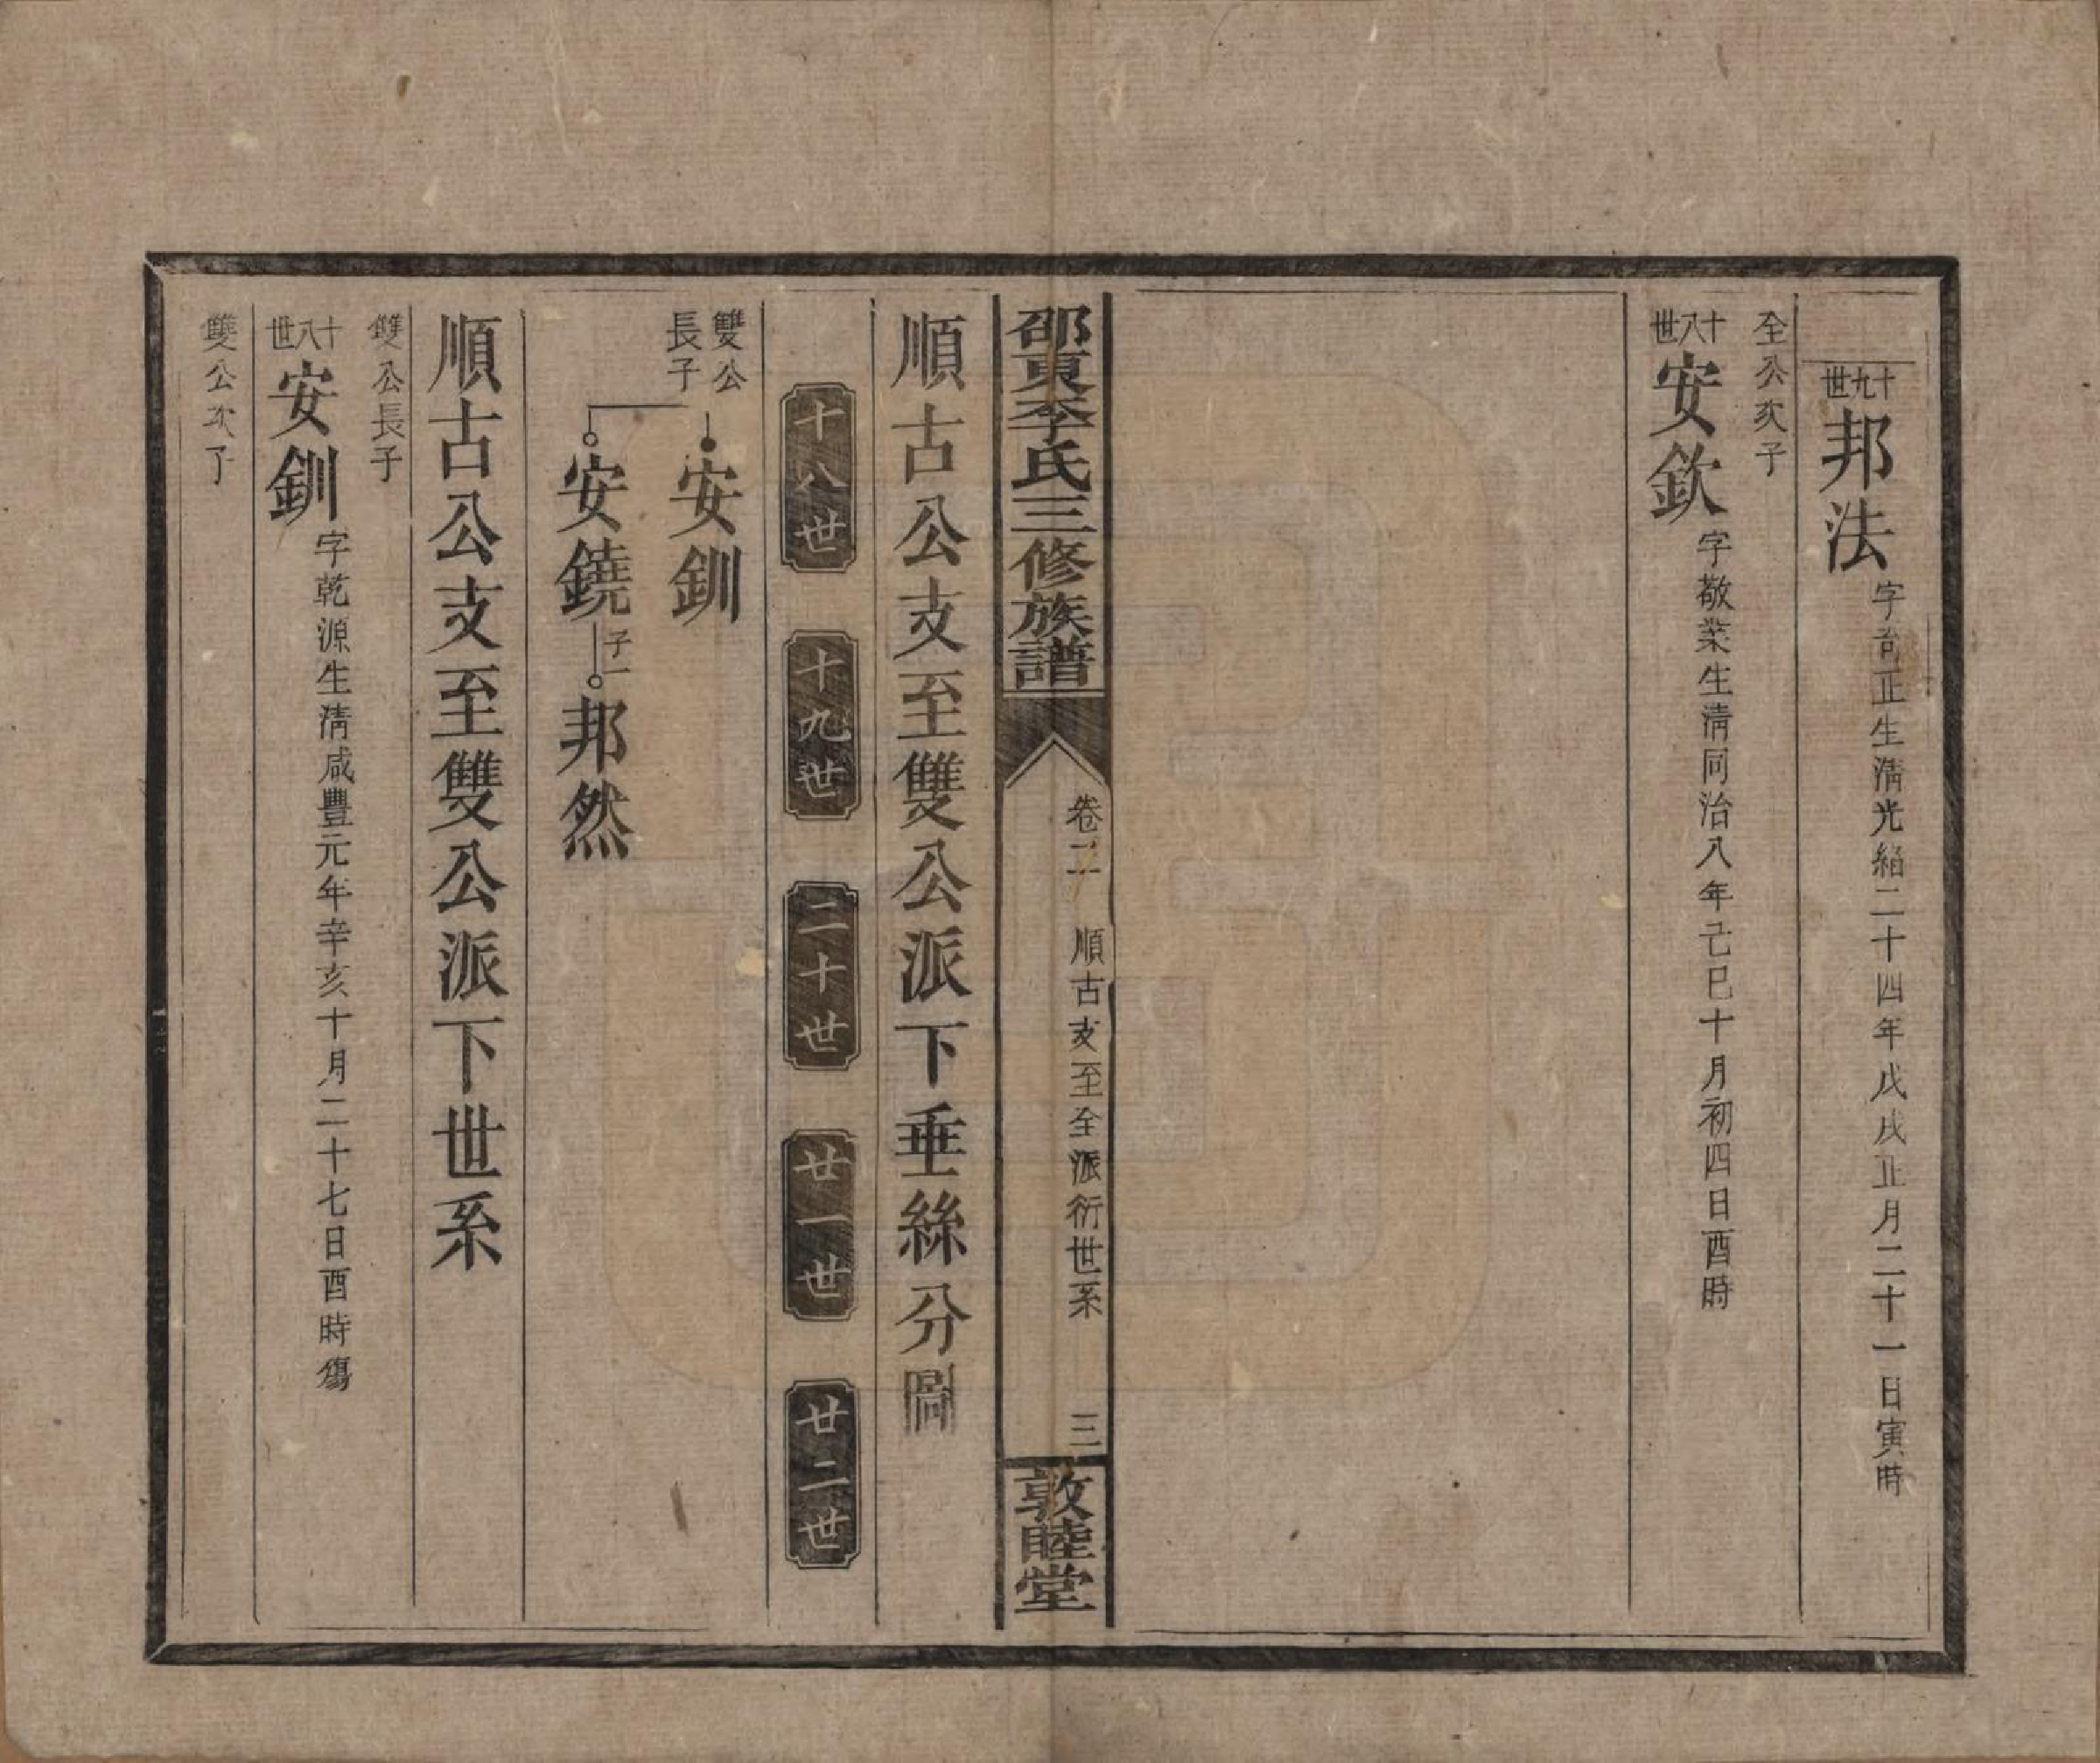 十九世
邦法
字奇正生淸光緒二十四年戊戌正月二十一日寅時
全公次子
十八世
安欽
字敬業生淸同治八年己巳十月初四日酉時
邵東李氏三修族譜
卷二 順古支至全派衍世系 三
敦睦堂
順古公支至雙公派下垂絲分圖
十八世 十九世 二十世 廿一世 廿二世
雙公
長子
安釧
安鐃 子一 邦然
順古公支至雙公派下世系
雙公長子
十八世
安釧
字乾源生淸咸豐元年辛亥十月二十七日酉時殤
雙公次子